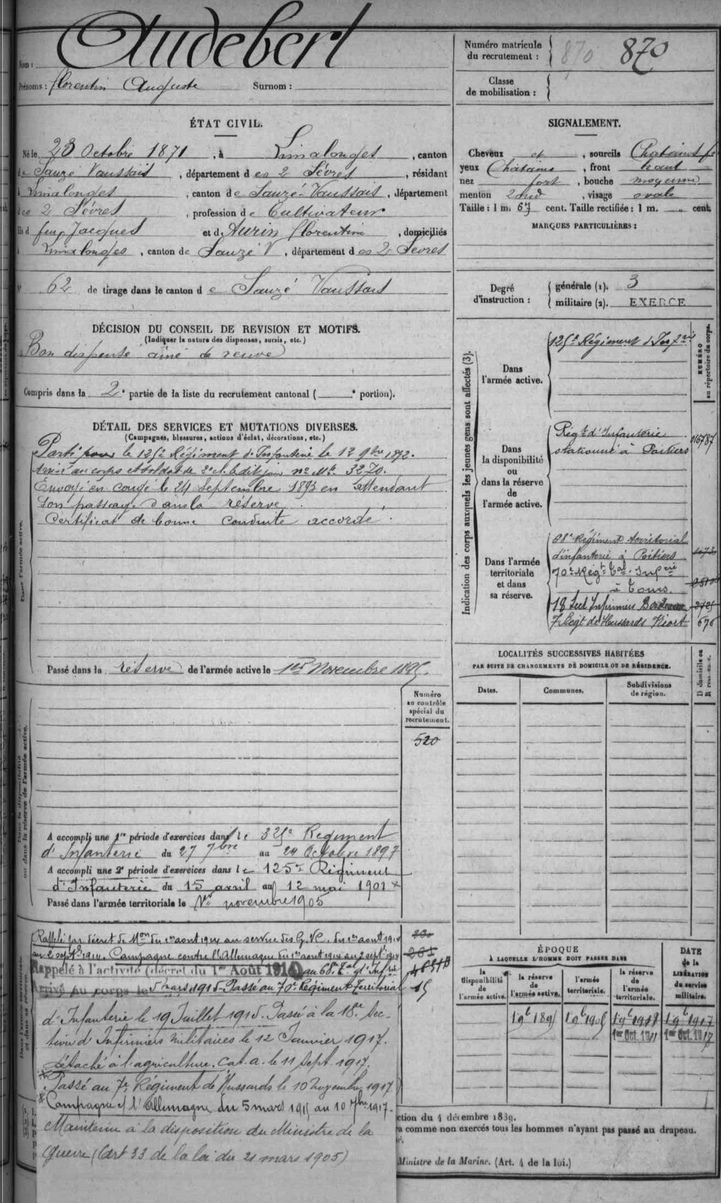 Nom : Audebert
Prénoms : Florentin Auguste Surnom :
Numéro matricule du recrutement : 870 870
Classe de mobilisation :
ÉTAT CIVIL.
Né le 23 Octobre 1871, à Limalonges, canton
de Sauzé Vaussais, département des 2 Sèvres, résidant
à Limalonges, canton de Sauzé-Vaussais, département
des 2 Sèvres, profession de Cultivateur
fils de feu Jacques et d'Aurin Florentine, domiciliés
à Limalonges, canton de Sauzé V, département des 2 Sèvres
N° 62 de tirage dans le canton de Sauzé Vaussais
SIGNALEMENT.
Cheveux et, sourcils Chatains
yeux Châtains, front haut
nez fort, bouche moyenne
menton rond, visage ovale
Taille : 1 m. 67 cent. Taille rectifiée : 1 m. cent.
MARQUES PARTICULIÈRES :
Degré d'instruction : générale (1). 3
militaire (2). EXERCÉ
DÉCISION DU CONSEIL DE REVISION ET MOTIFS.
(Indiquer la nature des dispenses, sursis, etc.)
Bon dispensé aîné de veuve
Compris dans la 2e partie de la liste du recrutement cantonal ( e portion).
DÉTAIL DES SERVICES ET MUTATIONS DIVERSES.
(Campagnes, blessures, actions d'éclat, décorations, etc.)
Parti pour le 125e Régiment d'Infanterie le 13 9bre 1892.
Arrivé au corps et soldat de 2e cl. le dit jour nº Mle 3270.
Envoyé en congé le 24 Septembre 1893 en attendant
son passage dans la réserve.
Certificat de bonne conduite accordé.
Passé dans la réserve de l'armée active le 1er Novembre 1895
Numéro au contrôle spécial du recrutement.
520
A accompli une 1re période d'exercices dans le 321e Régiment
d'Infanterie du 27 7bre au 24 Octobre 1897
A accompli une 2e période d'exercices dans le 125e Régiment
d'Infanterie du 15 avril au 12 mai 1901
Passé dans l'armée territoriale le 1er novembre 1905
Rappelé par décret de Mon du 1er aout 1914 au service des G.V.C. du 1er aout 1914
au 2 septbre 1914. Campagne contre l'Allemagne du 1er aout 1914 au 2 septbre 1914
Rappelé à l'activité (décret du 1er Août 1914) au 68e
Arrivé au corps le 5 mars 1915. Passé au 70e Régiment territorial
15
d'Infanterie le 19 Juillet 1915. Passé à la 18e Sec-
tion d'Infirmiers militaires le 12 Janvier 1917.
Détaché à l'agriculture, cat. a. le 11 Sept. 1917.
Passé au 7e Régiment de Hussards le 10 novembre 1917
Campagne c/ l'Allemagne du 5 mars 1915 au 10 9bre 1917
Maintenu à la disposition du Ministre de la
Guerre (Art 33 de la loi du 21 mars 1905)
Indication des corps auxquels les jeunes gens sont affectés (3).
NUMÉRO au répertoire du corps.
Dans l'armée active. 125e Régiment d'Infrie
Dans la disponibilité ou dans la réserve de l'armée active. Régt d'Infanterie
stationné à Poitiers
Dans l'armée territoriale et dans sa réserve. Régiment territorial
d'infanterie à Poitiers
70e Régt Tal Infrie
à Tours
18 Sect Infirmiers Bordeaux
7 Regt de Hussards Niort 676
LOCALITÉS SUCCESSIVES HABITÉES
PAR SUITE DE CHANGEMENTS DE DOMICILE OU DE RÉSIDENCE.
Dates. Communes. Subdivisions de région. D domicile ou R résidence.
ÉPOQUE
À LAQUELLE L'HOMME DOIT PASSER DANS
la disponibilité de l'armée active. la réserve de l'armée active. l'armée territoriale. la réserve de l'armée territoriale. DATE de la LIBÉRATION du service militaire.
1 9bre 1895 1 9bre 1905
1er Oct. 1911 1er Oct. 1917
ction du 4 décembre 1889.
ra comme non exercés tous les hommes n'ayant pas passé au drapeau.
Ministre de la Marine. (Art. 4 de la loi.)